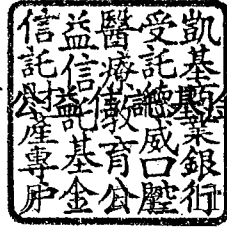 凱基商業銀行
受託德威口腔
醫療教育公
益信託基金
信託財產專戶